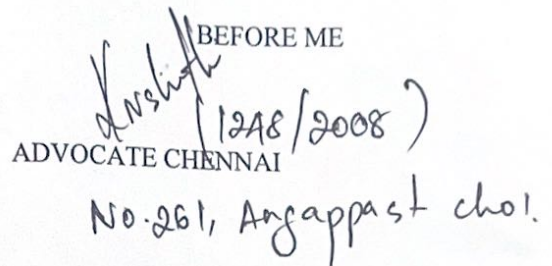 BEFORE ME
(1248/2008)
ADVOCATE CHENNAI
No.261, Angappast chol.